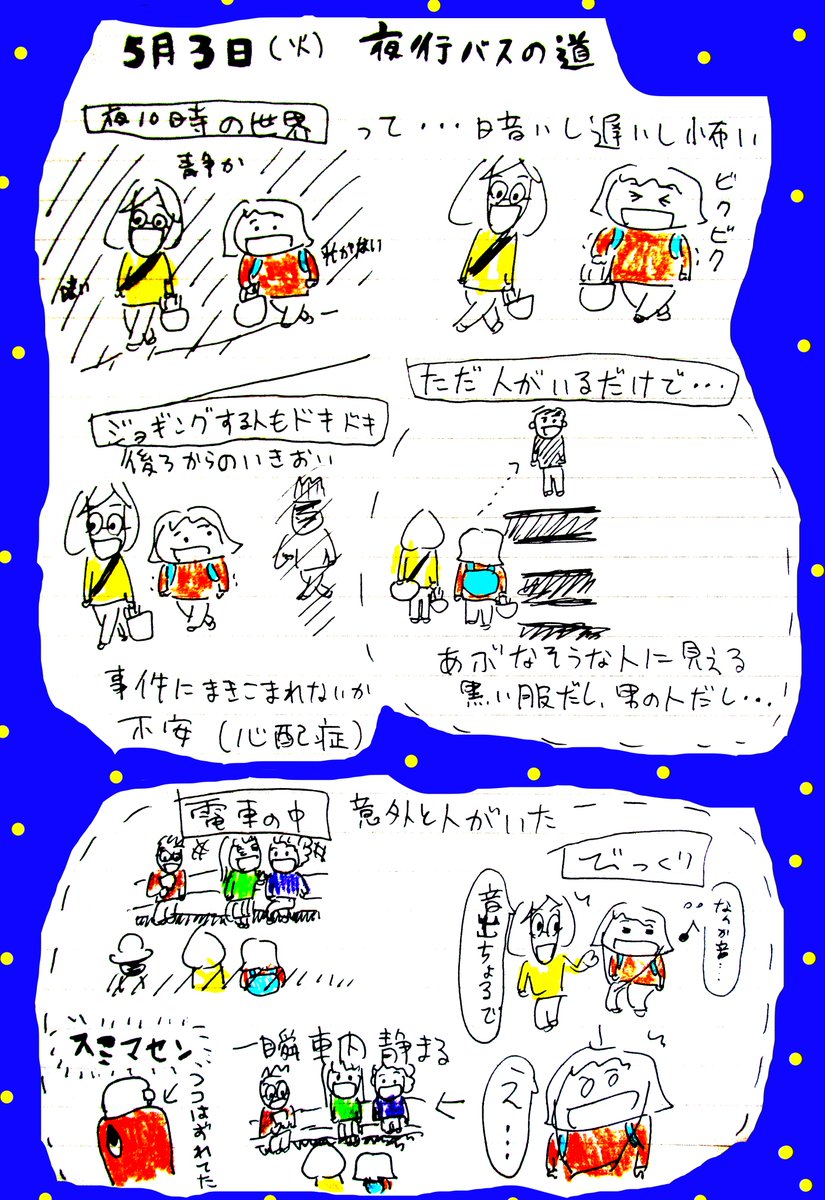 5月3日(火) 夜行バスの道
夜10時の世界
って・・・暗いし遅いし怖い
静か
暗い
私がない
ビクビク
ジョギングする人もドキドキ
後ろからのいきおい
事件にまきこまれないか
不安(心配症)
ただ人がいるだけで・・・
あぶなそうな人に見える
黒い服だし、男の人だし・・・
電車の中
意外と人がいた
びっくり
なんか音・・・
音出ちょるで
え・・
一瞬車内静まる
スミマセン
はずれてた